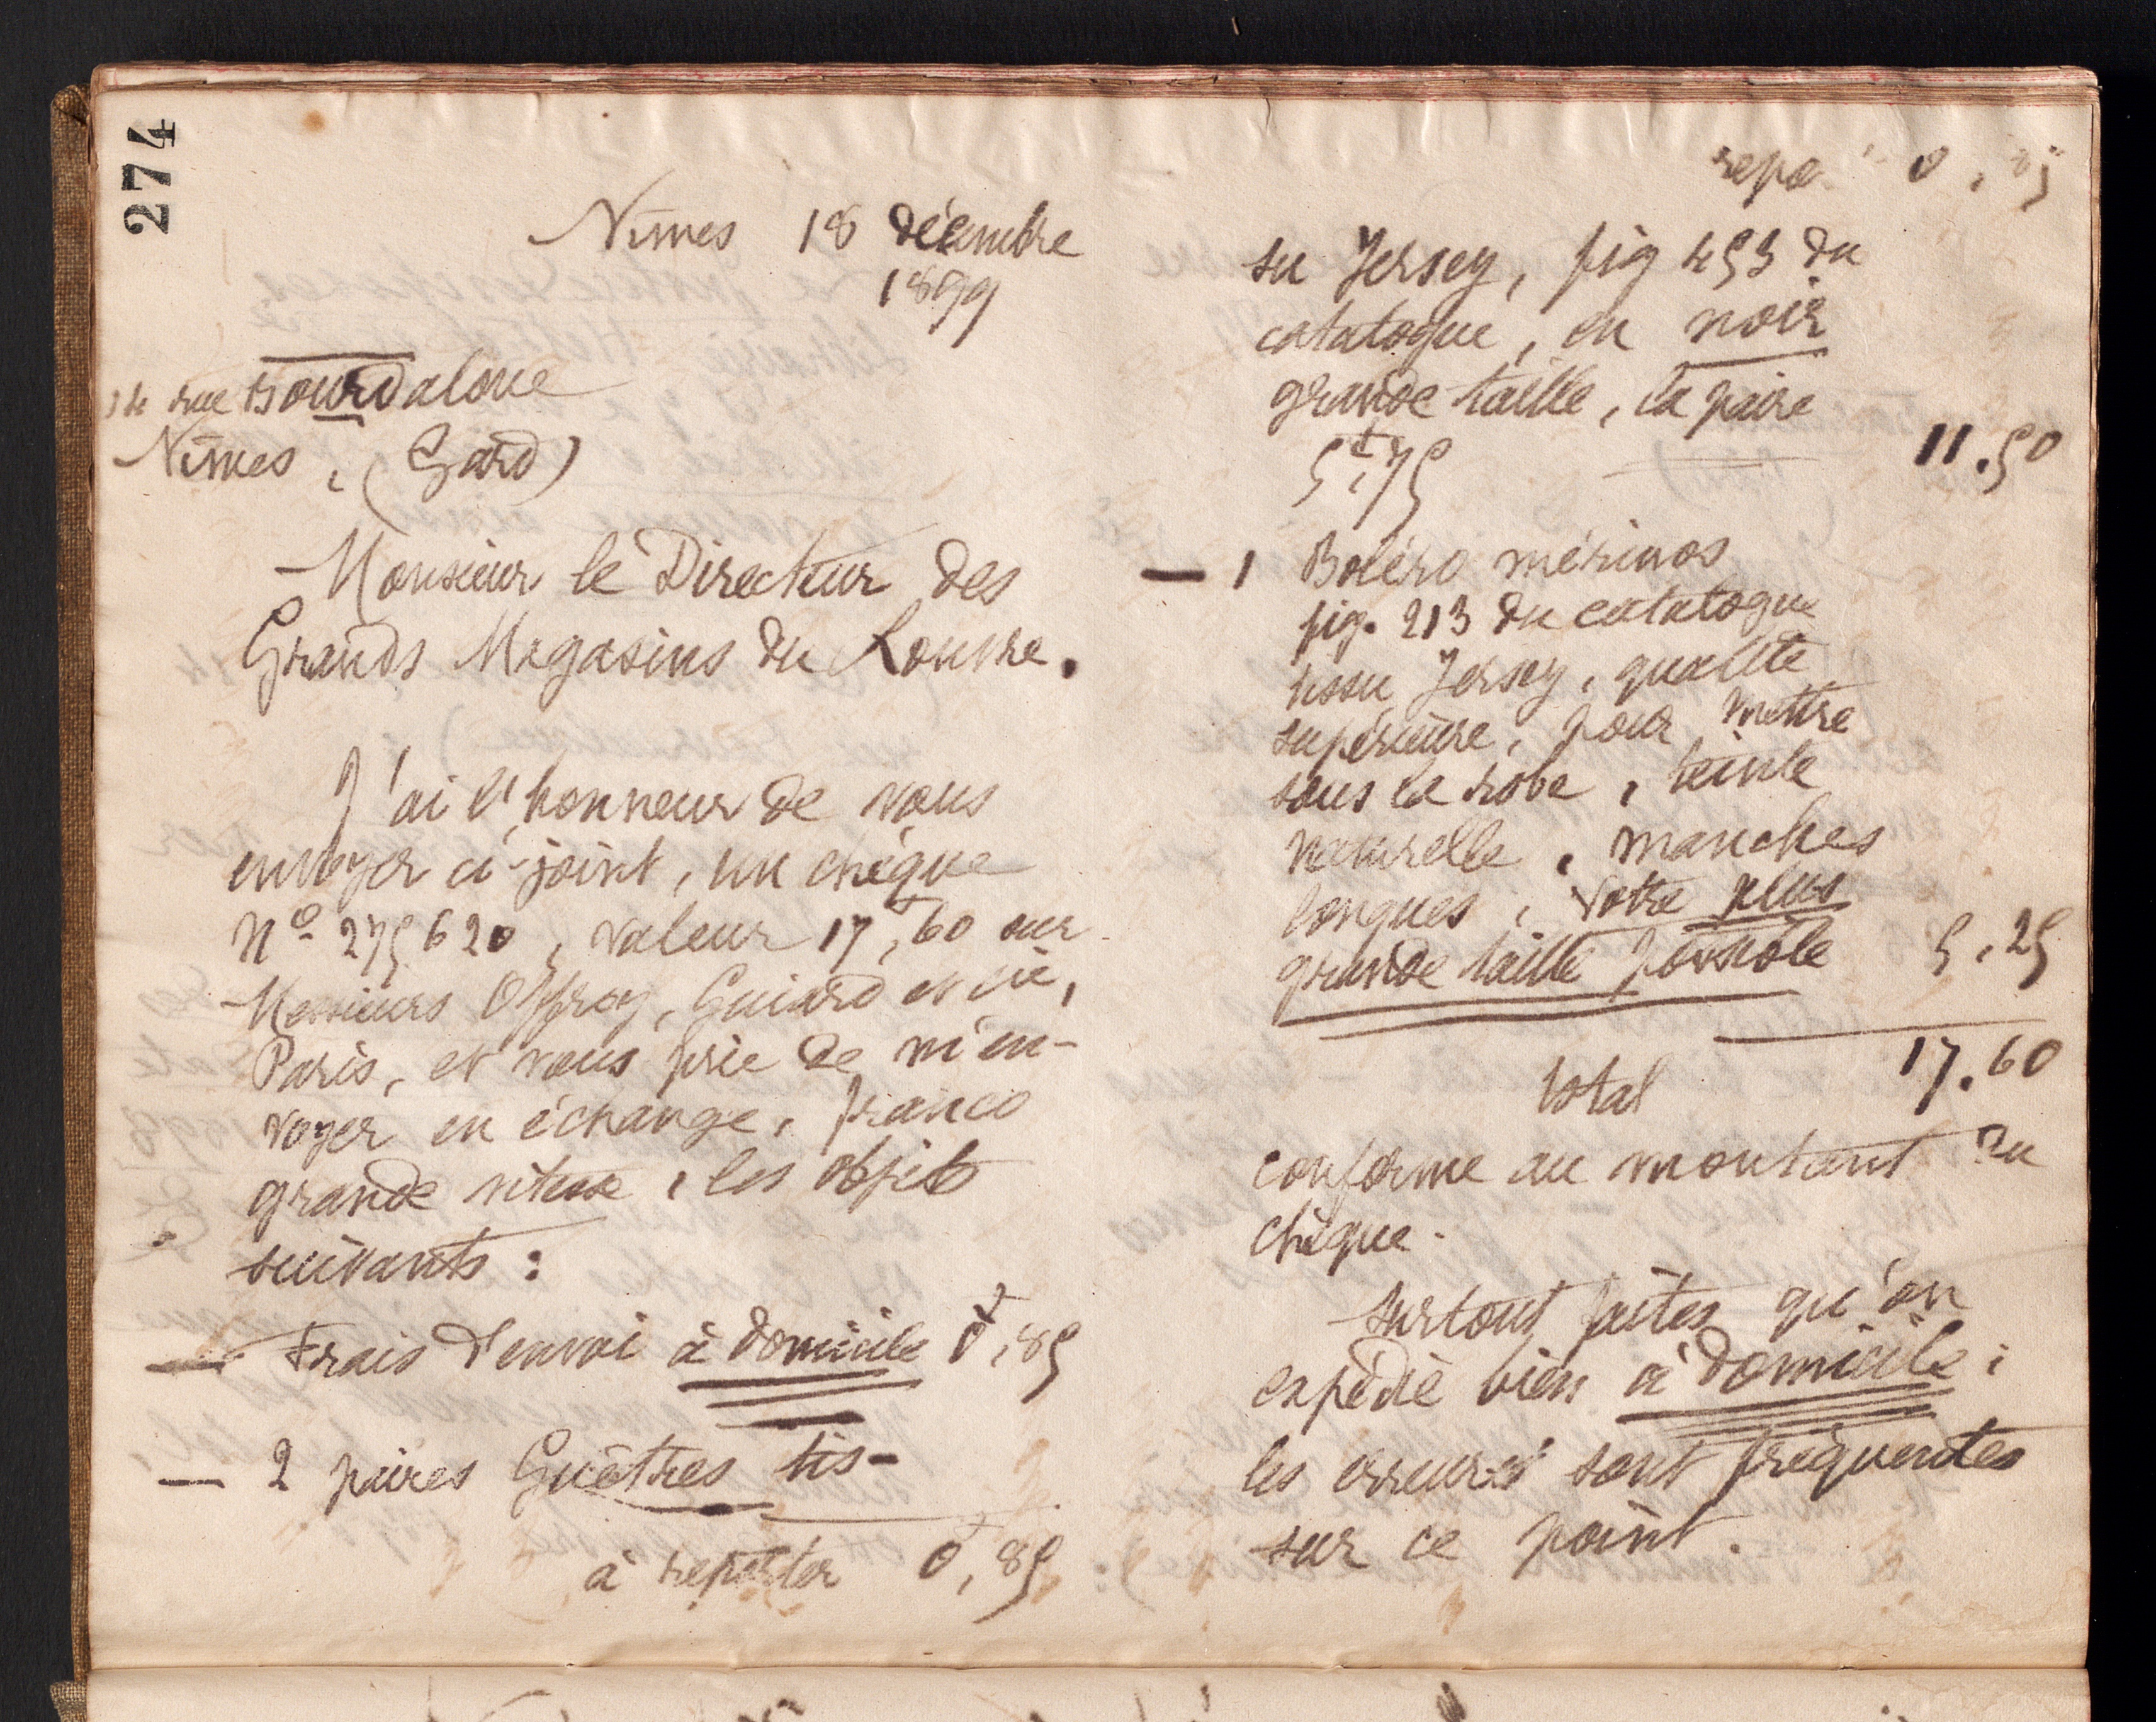 274
Nîmes 18 décembre
1899
14 rue Bourdaloue
Nîmes, (Gard)
Monsieur le Directeur des
Grands Magasins du Louvre.
J'ai l'honneur de vous
envoyer ci-joint, un chèque
N° 275620, valeur 17f,60 sur
Messieurs Offroy, Guiard et Cie,
Paris, et vous prie de m'en-
voyer en échange, franco
grande vitesse, les objets
suivants :
— Frais d'envoi à domicile 0f,85
— 2 paires Guêtres tis-
à reporter 0f,85
repo 0,85
su Jersey, fig 453 du
catalogue, en noir
grande taille, la paire
5f,75 11.50
— 1 Boléro mérinos
fig. 213 du catalogue
tissu Jersey, qualité
supérieure, pour mettre
sous la robe, teinte
naturelle, manches
longues, votre plus
grande taille possible 5,25
total 17.60
conforme au montant du
chèque.
Surtout faites qu'on
expédie bien à domicile ;
les erreurs sont fréquentes
sur ce point.